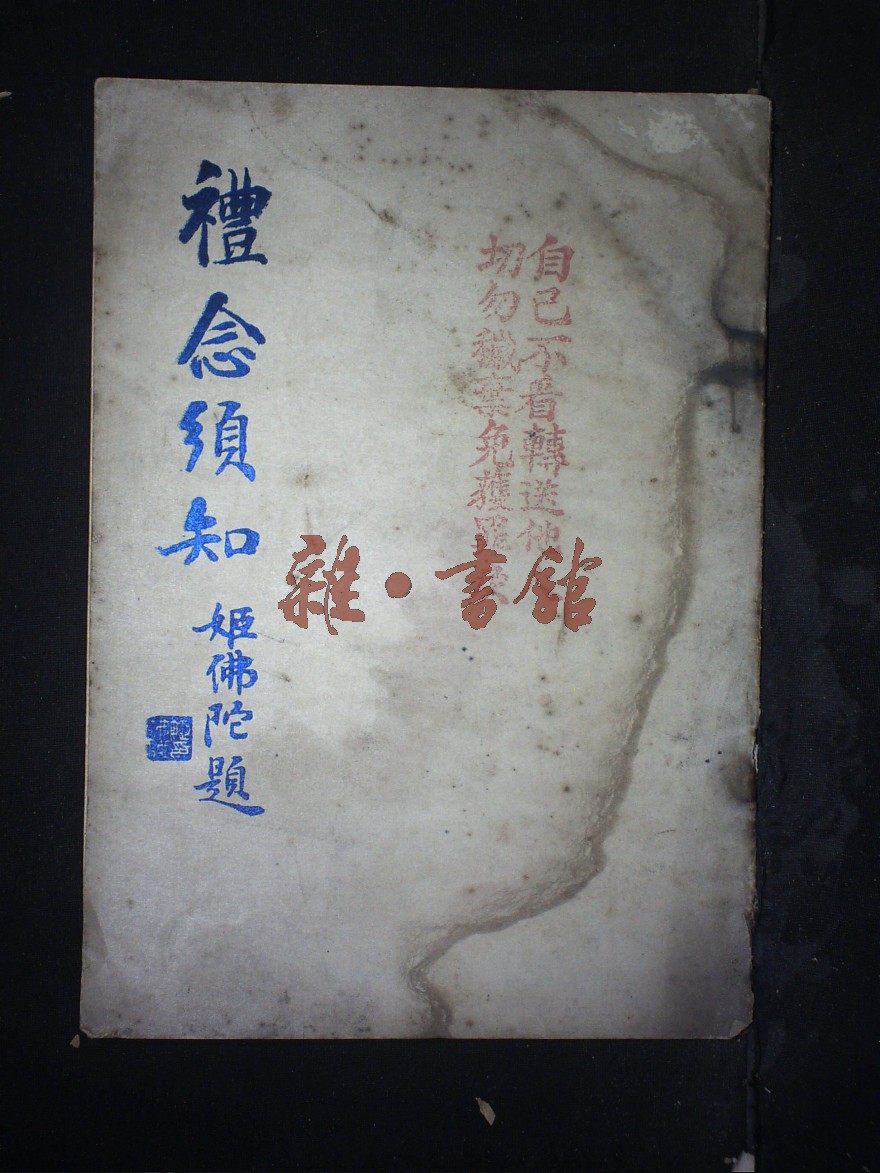 自己不看轉送他
切勿穢棄免獲罪
禮念須知
姬佛陀題
雜·書館